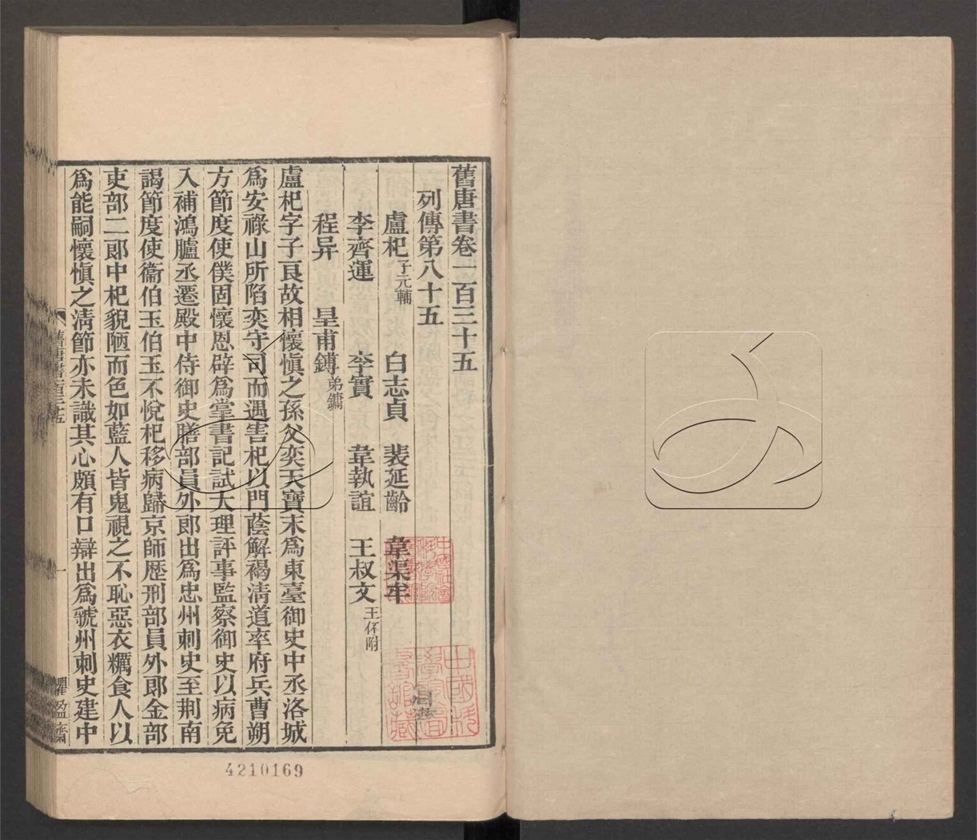 舊唐書卷一百三十五
列傳第八十五
盧杞子元輔 白志貞 裴延齡 韋渠牟
李齊運 李實 韋執誼 王叔文王伾附
程异 皇甫鎛弟鏞
盧杞字子良故相懷愼之孫父奕天寶末爲東臺御史中丞洛城
爲安祿山所陷奕守司而遇害杞以門蔭解褐淸道率府兵曹朔
方節度使僕固懷恩辟爲掌書記試大理評事監察御史以病免
入補鴻臚丞遷殿中侍御史膳部員外郎出爲忠州刺史至荆南
謁節度使衞伯玉伯玉不悅杞移病歸京師歷刑部員外郎金部
吏部二郎中杞貌陋而色如藍人皆鬼視之不恥惡衣糲食人以
爲能嗣懷愼之淸節亦未識其心頗有口辯出爲虢州刺史建中
舊唐書百三十五
一
懼盈齋
4210169